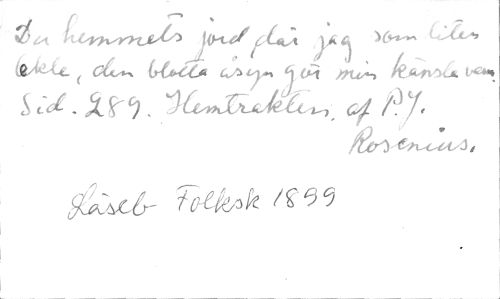 Du hemmets jord, där jag som liten
lekte, den blotta åsyn gör min känsla varm.
Sid. 289. Hemtrakten, af P.J.
Rosenius.
Läseb Folksk 1899